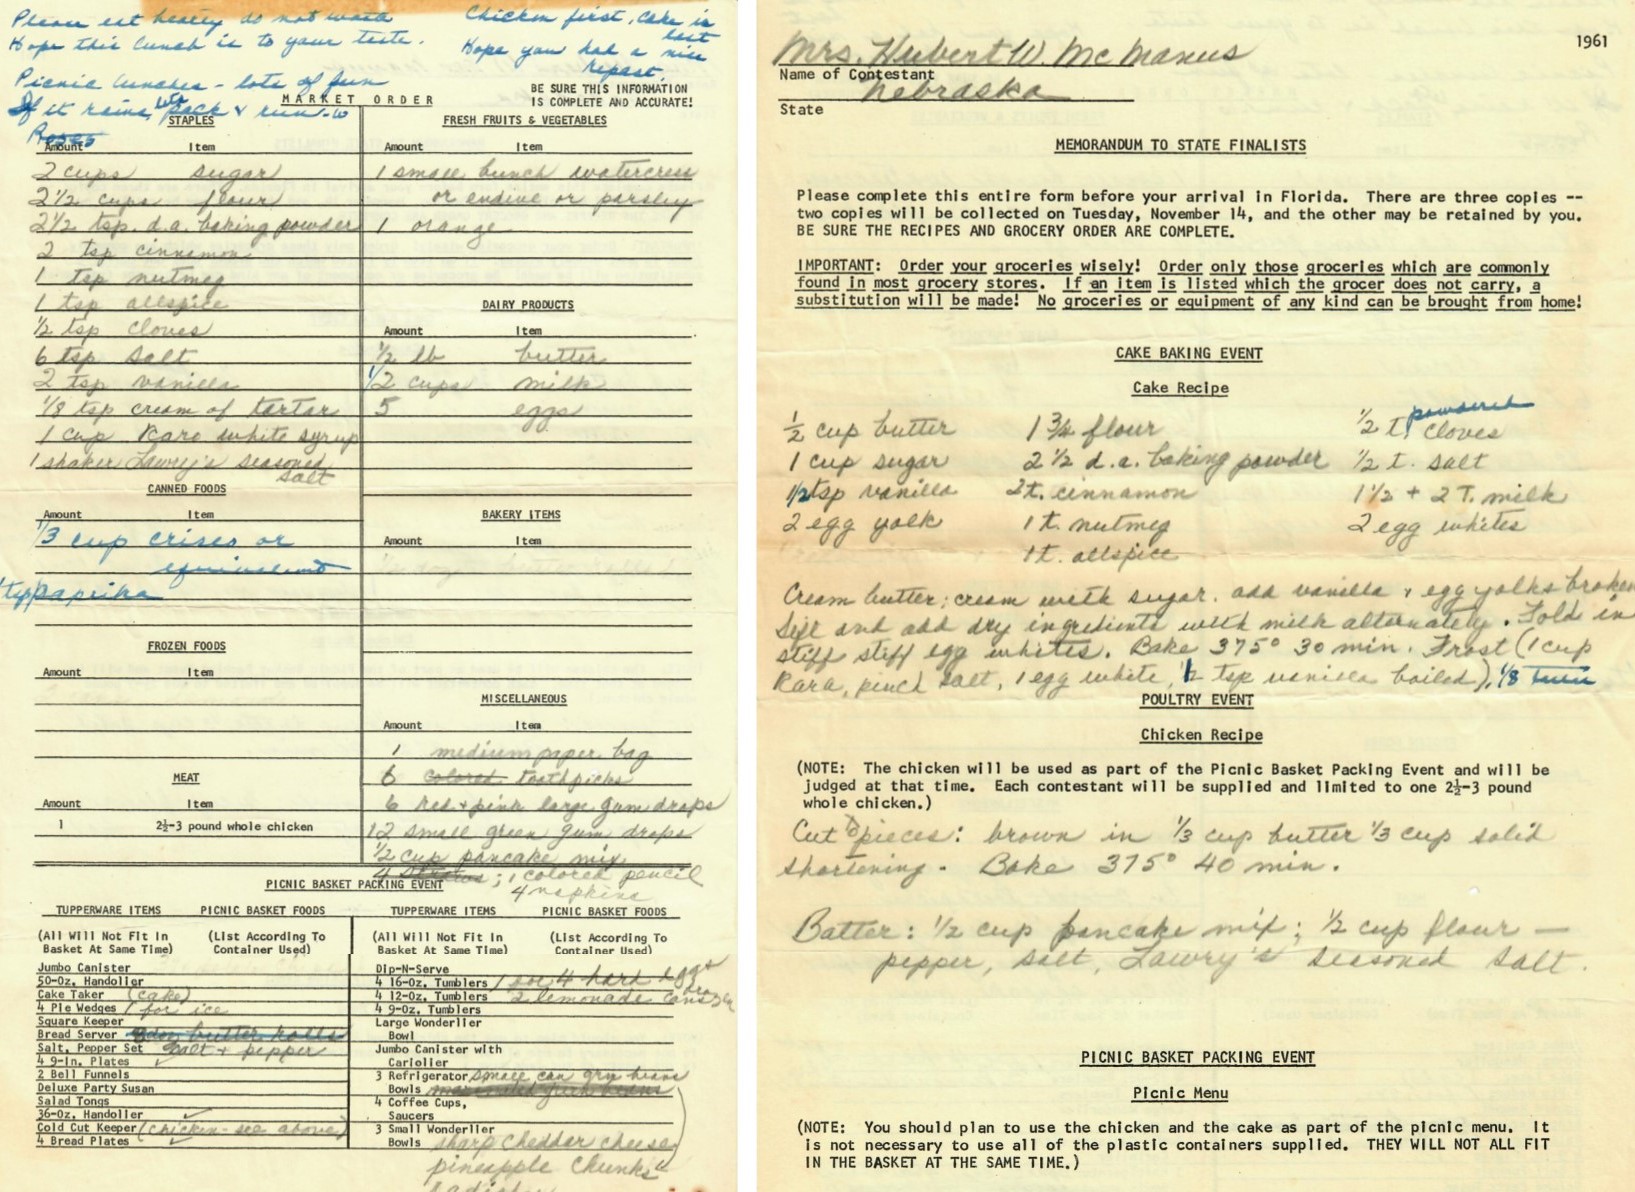 Please eat hearty do not waste
Hope this lunch is to your taste.
Chicken first, cake is
last
Hope you had a nice
repast.
Picnic lunches - lots of fun
If it rains, let's pack & run
Roses
MARKET ORDER
BE SURE THIS INFORMATION
IS COMPLETE AND ACCURATE!
STAPLES
Amount Item
2 cups sugar
2 1/2 cups flour
2 1/2 tsp. d.a. baking powder
2 tsp cinnamon
1 tsp nutmeg
1 tsp allspice
1/2 tsp cloves
6 tsp salt
2 tsp vanilla
1/8 tsp cream of tartar
1 cup Karo white syrup
1 shaker Lawry's seasoned
salt
CANNED FOODS
Amount Item
1/3 cup crisco or
equivalent
1 tsp paprika
FROZEN FOODS
Amount Item
MEAT
Amount Item
1 2½-3 pound whole chicken
FRESH FRUITS & VEGETABLES
Amount Item
1 small bunch watercress
or endive or parsley
1 orange
DAIRY PRODUCTS
Amount Item
1/2 lb butter
1/2 cups milk
5 eggs
BAKERY ITEMS
Amount Item
MISCELLANEOUS
Amount Item
1 medium paper bag
6 colored toothpicks
6 red & pink large gum drops
12 small green gum drops
1/2 cup pancake mix
4 straws; 1 colored pencil
4 napkins
PICNIC BASKET PACKING EVENT
TUPPERWARE ITEMS PICNIC BASKET FOODS
(All Will Not Fit In (List According To
Basket At Same Time) Container Used)
Jumbo Canister
50-Oz. Handolier
Cake Taker (cake)
4 Pie Wedges for ice
Square Keeper
Bread Server butter rolls
Salt, Pepper Set salt + pepper
4 9-in. Plates
2 Bell Funnels
Deluxe Party Susan
Salad Tongs
36-Oz. Handolier
Cold Cut Keeper (chicken - see above)
4 Bread Plates
TUPPERWARE ITEMS PICNIC BASKET FOODS
(All Will Not Fit In (List According To
Basket At Same Time) Container Used)
Dip-N-Serve
4 16-Oz. Tumblers 4 hard eggs
4 12-Oz. Tumblers 2 lemonade cans frozen
4 9-Oz. Tumblers
Large Wonderlier
Bowl
Jumbo Canister with
Cariolier
3 Refrigerator small can grn beans
Bowls
4 Coffee Cups,
Saucers
3 Small Wonderlier
Bowls sharp cheddar cheese
pineapple chunks
1961
Mrs. Hubert W. McManus
Name of Contestant
Nebraska
State
MEMORANDUM TO STATE FINALISTS
Please complete this entire form before your arrival in Florida. There are three copies --
two copies will be collected on Tuesday, November 14, and the other may be retained by you.
BE SURE THE RECIPES AND GROCERY ORDER ARE COMPLETE.
IMPORTANT: Order your groceries wisely! Order only those groceries which are commonly
found in most grocery stores. If an item is listed which the grocer does not carry, a
substitution will be made! No groceries or equipment of any kind can be brought from home!
CAKE BAKING EVENT
Cake Recipe
1/2 cup butter 1 3/4 flour 1/2 t. powdered cloves
1 cup sugar 2 1/2 d.a. baking powder 1/2 t. salt
1/2 tsp vanilla 2t. cinnamon 1 1/2 + 2 T. milk
2 egg yolk 1 t. nutmeg 2 egg whites
1 t. allspice
Cream butter; cream with sugar. add vanilla & egg yolks broken
Sift and add dry ingredients with milk alternately. Fold in
stiff stiff egg whites. Bake 375° 30 min. Frost (1 cup
Karo, pinch salt, 1 egg white, 1/2 tsp vanilla boiled), 1/8
POULTRY EVENT
Chicken Recipe
(NOTE: The chicken will be used as part of the Picnic Basket Packing Event and will be
judged at that time. Each contestant will be supplied and limited to one 2½-3 pound
whole chicken.)
Cut 8 pieces: brown in 1/3 cup butter 1/3 cup solid
shortening. Bake 375° 40 min.
Batter: 1/2 cup pancake mix; 1/2 cup flour —
pepper, salt, Lawry's seasoned salt.
PICNIC BASKET PACKING EVENT
Picnic Menu
(NOTE: You should plan to use the chicken and the cake as part of the picnic menu. It
is not necessary to use all of the plastic containers supplied. THEY WILL NOT ALL FIT
IN THE BASKET AT THE SAME TIME.)